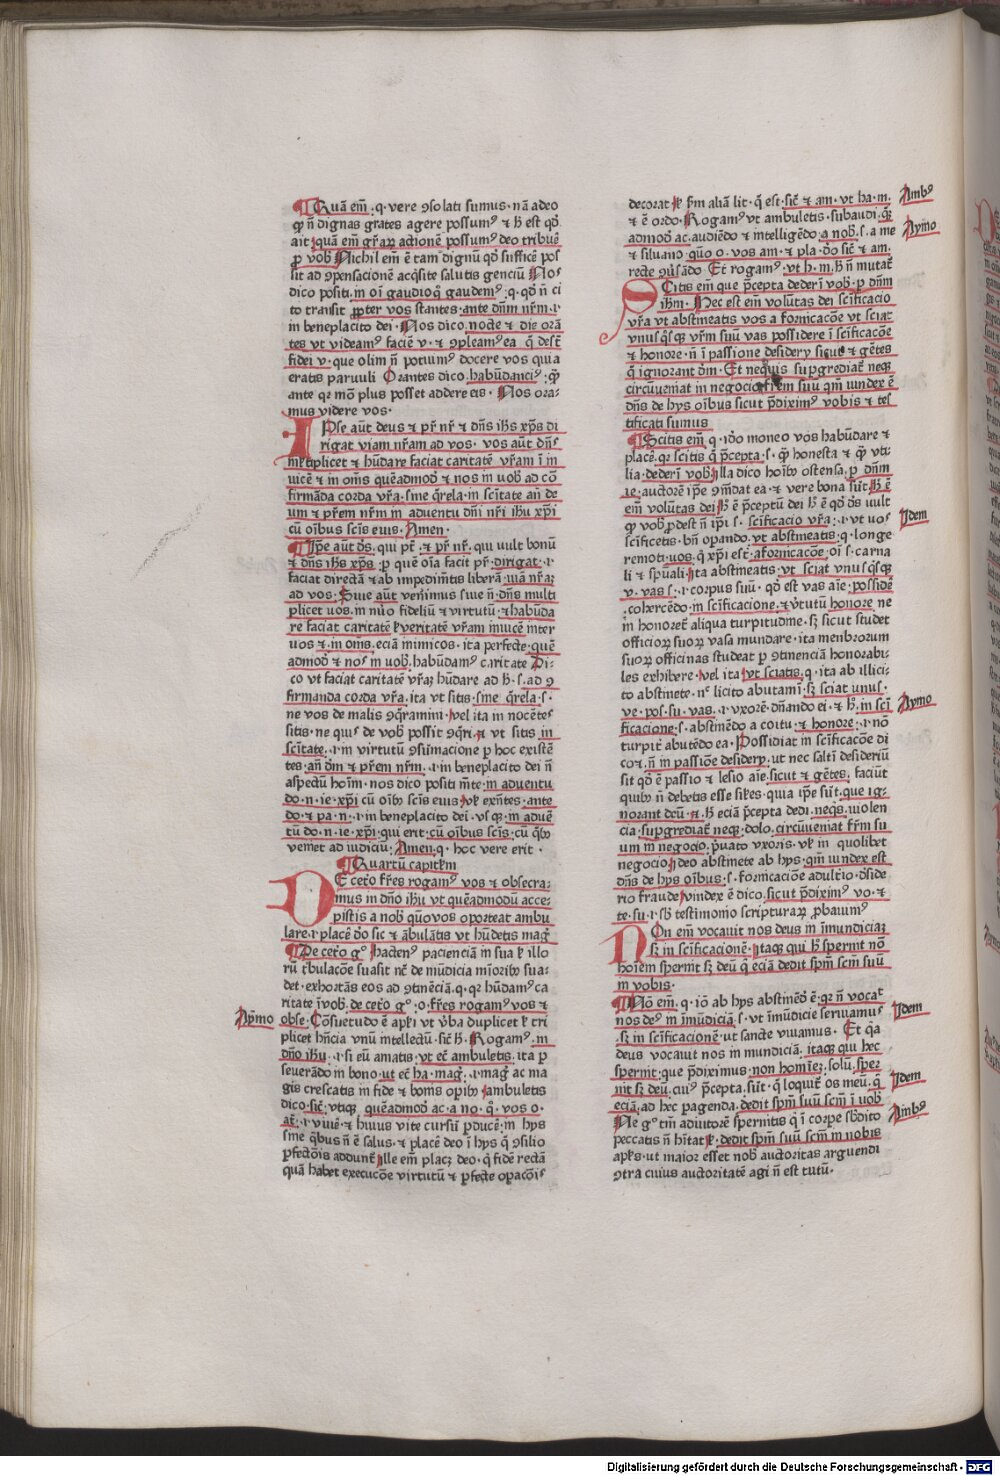 Quā em̄·q·vere ꝯsolati sumus·nā adeo
ꝙ n̄ dignas grates agere possumꝰ ⁊ h̄ est qd̕
ait quā em̄ gr̄aꝝ actionē possumꝰ deo tribuē
ꝓ vob̕ Nichil em̄ ē tam dignū qd̕ sufficē pos
sit ad ꝯpensationē acq̄site salutis genciū Nos
dico positi in oī gaudio q̄ gaudemꝰ·q·qd̕ n̄ ci
to transit ꝓpter vos stantes·ante dn̄m nr̄m·ı·
in beneplacito dei·Nos dico nocte ⁊ die orā
tes vt videamꝰ faciē v·⁊ ꝯpleamꝰ ea q̄ dest̄
fidei v·que olim n̄ potuimꝰ docere vos quia
eratis paruuli Orantes dico habūdanciꝰ·ꝙ
ante qr̄ mō plus posset addere eis·Nos ora⸗
mus videre vos·
IPse aūt deus ⁊ pr̄ nr̄ ⁊ dn̄s ih̄s xp̄s di
rigat viam nr̄am ad vos·vos aūt dn̄s
mĺtiplicet ⁊ hūdare faciat caritatē vr̄am ī in
uicē ⁊ in om̄s quēadmod̕ ⁊ nos in uob̕ ad cō
firmāda corda vr̄a·sine q̄rela·in sc̄itate an̄ de
um ⁊ pr̄em nr̄m in aduentu dn̄i nr̄i ih̄u xp̄i
cū oībus sc̄is eius·Amen·
Ip̄e aūt ds̄·qui pr̄·⁊ pr̄ nr̄·qui uult bonū
⁊ dn̄s ih̄s xp̄s·ꝑ que oīa facit pr̄·dirigat·ı·
faciat directā ⁊ ab impedimt̄is liberā·uiā nr̄aꝫ
ad vos·Siue aūt ven̄imus siue n̄·dn̄s multi
plicet uos·in nūo fideliū ⁊ virtutū·⁊ habūda
re faciat caritatē ⁊ veritatē vr̄am inuicē inter
uos ⁊·in om̄s·eciā inimicos·ita perfecte·quē
admod̕ ⁊ nos in uob̕·habūdamꝰ caritate Di⸗
co vt faciat caritatē vr̄aꝫ hūdare ad h̄·s·ad ꝯ
firmanda corda vr̄a·ita vt sitis·sine q̄rela·s·
ne vos de malis ꝯq̄ramini·vel ita in nocētes
sitis·ne quis de vob̕ possit ꝯq̄ri·⁊ vt sitis in
sc̄itate·ı·in virtutū ꝯsumacione ꝑ hoc existē
tes·an̄ dm̄ ⁊ pr̄em nr̄m·ı·in beneplacito dei n̄
aspectū hoīm·nos dico positi in̄te·in aduentu
do·n·ie·xp̄i cū oībꝫ sc̄is eius vĺ exn̄tes·ante
do·⁊ pa·n·ı·in beneplacito dei·vsqꝫ in aduē
tū do·n·ie·xp̄i·qui erit·cū oībus sc̄is·cū q̄bꝫ
veniet ad iudiciū·Amen·q·hoc vere erit·
Quartū capitĺm
DE cet̄o fr̄es rogamꝰ vos ⁊ obsecra⸗
mus in dn̄o ih̄u vt quēadmodū acce⸗
pistis a nob̕ quō uos oporteat ambu
lare·⁊ placē dō sic ⁊ ābulātis vt hūdetis mag̕
De cet̄o gͦ Hactenꝰ pacienciā in sua ⁊ illo
rū t̄bulacōe suasit nē·de mūdicia miorībꝫ sua
det·exhortās eos ad ꝯtinēciā·q·qr̄ hūdamꝰ ca
ritate in̄ vob̕·de cet̄o gͦ·o·fr̄es rogamꝰ vos ⁊
Aymo obse·Cōsuetudo ē apĺi vt v̄ba duplicet ⁊ tri
plicet hn̄cia vnū intellectū·sic h̄·Rogamꝰ·in
dn̄o ih̄u·ı·si eū amatis·vt ec̄ ambuletis·ita ꝑ
seuerādo in bono·ut ec̄ ha·mag̕·ı·mag̕ ac ma
gis crescatis in fide ⁊ bonis opībꝫ ambuletis
dico·sic·utiqꝫ quēadmod̕ ac·a no·q̄·vos o·
at·ı·viuē ⁊ huius vite cursū ꝑducē·in hys
sine q̄bus n̄ ē salus·⁊ placē deo ī hys q̄ ꝯsilio
ꝑfectōis addunt̄ Ille em̄ placꝫ deo·q̄ fidē rectā
quā habet execucōe virtutū ⁊ ꝑfecte oꝑacōis
decorat ⁊ sm̄ aliā lit·q̄ est·sic ⁊ am·vt ha·m· Ambꝰ
⁊ ē ordo·Rogamꝰ vt ambuletis·subaudi·q̄
admod̕ ac·audiēdo ⁊ intelligēdo a nob̕·s·a me Aymo
⁊ siluano quō o·vos am·⁊ pla·do sic ⁊ am·
recte ꝯūsādo Et rogamꝰ·vt h·m·h̄ n̄ mutat̄
SCitis em̄ que p̄cepta dederī vob̕·ꝑ dn̄m
ih̄m·Hec est em̄ volūtas dei sc̄ificacio
vr̄a vt abstineatis vos a fornicacōe vt sciat
vnusq̄sqꝫ vr̄m suū vas possidere ī sc̄ificacōe
⁊ honore·n̄ ī passione desidery sicut ⁊ gētes
q̄ ignorant dm̄·Et neq̄uis supgrediat̄ neqꝫ
circūueniat in negocio fr̄em suū qm̄ iudex ē
dn̄s de hys oībus sicut p̄diximꝰ vobis ⁊ tes
tificati sumus
Scitis em̄ q·idō moneo vos habūdare ⁊
placē·qr̄ scitis q̄ p̄cepta·s·ꝙ honesta ⁊ ꝙ vti⸗
lia·dederī vob̕ Illa dico hoībꝫ ostensa·ꝑ dn̄m
ie·auctorē ip̄e ꝯmdat ea·⁊ vere bona sūt H̄ ē
em̄ volūtas dei H̄ ē p̄ceptū dei h̄ ē qd̕ ds̄ uult
ꝙ vob̕ ꝓdest n̄ ip̄i s·sc̄ificacio vr̄a·ı·vt uos Idem
sc̄ificetis·bn̄ opando·vt abstineatis·q·longe
remoti·uos·q̄ xp̄i est·a fornicacōe·oī s·carna
li ⁊ spūali·ita abstineatis·vt sciat vnusq̄sqꝫ
v·vas·s·ı·corpus suū·qd̕ est vas aīe·possidē
·cohercēdo·in sc̄ificacione·⁊ v̄tutū honore ne
in honoret̄ aliqua turpitudine·sꝫ sicut studet
officioꝝ suoꝝ vasa mundare·ita menbrorum
suoꝝ officinas studeat ꝑ ꝯtinenciā honorabi⸗
les exhibere·vel ita vt sciatis·q·ita ab illici⸗
to abstinete·nͨ licito abutamī·sꝫ sciat unus·
ve·pos·su·vas·ı·vxorē·dn̄ando ei·⁊ h̄·in sc̄i Aymo
ficacione·s·abstinēdo a coitu·⁊ honore·ı·nō
turpit̄ abutēdo ea·Possidiat in sc̄ificacōe di
co ⁊·n̄ in passiōe desidery·ut nec saltī desideriū
sit qd̕ ē passio ⁊ lesio aīe·sicut ⁊ gētes·faciūt
quibꝫ n̄ debetis esse siḱes·quia ip̄e sūt·que ig⸗
norant deū·⁊·h̄ eciā p̄cepta dedi·neq̄s·uiolen
cia·supgrediat̄ neqꝫ·dolo·circūueniat fr̄m su
um in negocio·p̄uato vxoris·vĺ in quolibet
negocio Ideo abstinete ab hys·qm̄ iudex est
dn̄s de hys oībus·s·fornicacōe adulterio·ꝯside
rio fraude vindex ē dico·sicut p̄diximꝰ vo·⁊
te·su·ı·sb̕ testimonio scripturaꝝ ꝓbauimꝰ
NOn em̄ vocauit nos deus in īmundiciaꝫ
sꝫ in sc̄ificacionē·Itaqꝫ qui h̄ spernit nō
hoīem spernit sꝫ deū q̄ eciā dedit spm̄ scm̄ suū
in vobis·
Nō em̄·q·iō ab hys abstinēd̕ ē·qr̄ n̄ vocat
nos deꝰ in īmūdiciā·s·vt īmūdicie seruiamus Idem
·sꝫ in sc̄ificacionē·ut sancte viuamus·Et q̄a
deus vocauit nos in mundiciā·itaqꝫ qui hec
spernit·que p̄diximus·non homīeꝫ·solū·sper
nit sꝫ deū·cuiꝰ p̄cepta·sūt·q̄ loquit̄ os meū·q̄ Idem
eciā·ad hec ꝑagenda·dedit spm̄ suū scm̄ ī uob̕
Ne gͦ tm̄ adiutorē spernitis q̄ ī corpe sb̕dito Ambꝰ
peccatis n̄ hītat ⁊·dedit spm̄ suū scm̄ in nobis
apĺis·ut maior esset nob̕ auctoritas arguendi
ꝯtra cuius auctoritatē agi n̄ est tutū·
Digitalisierung gefördert durch die Deutsche Forschungsgemeinschaft · DFG